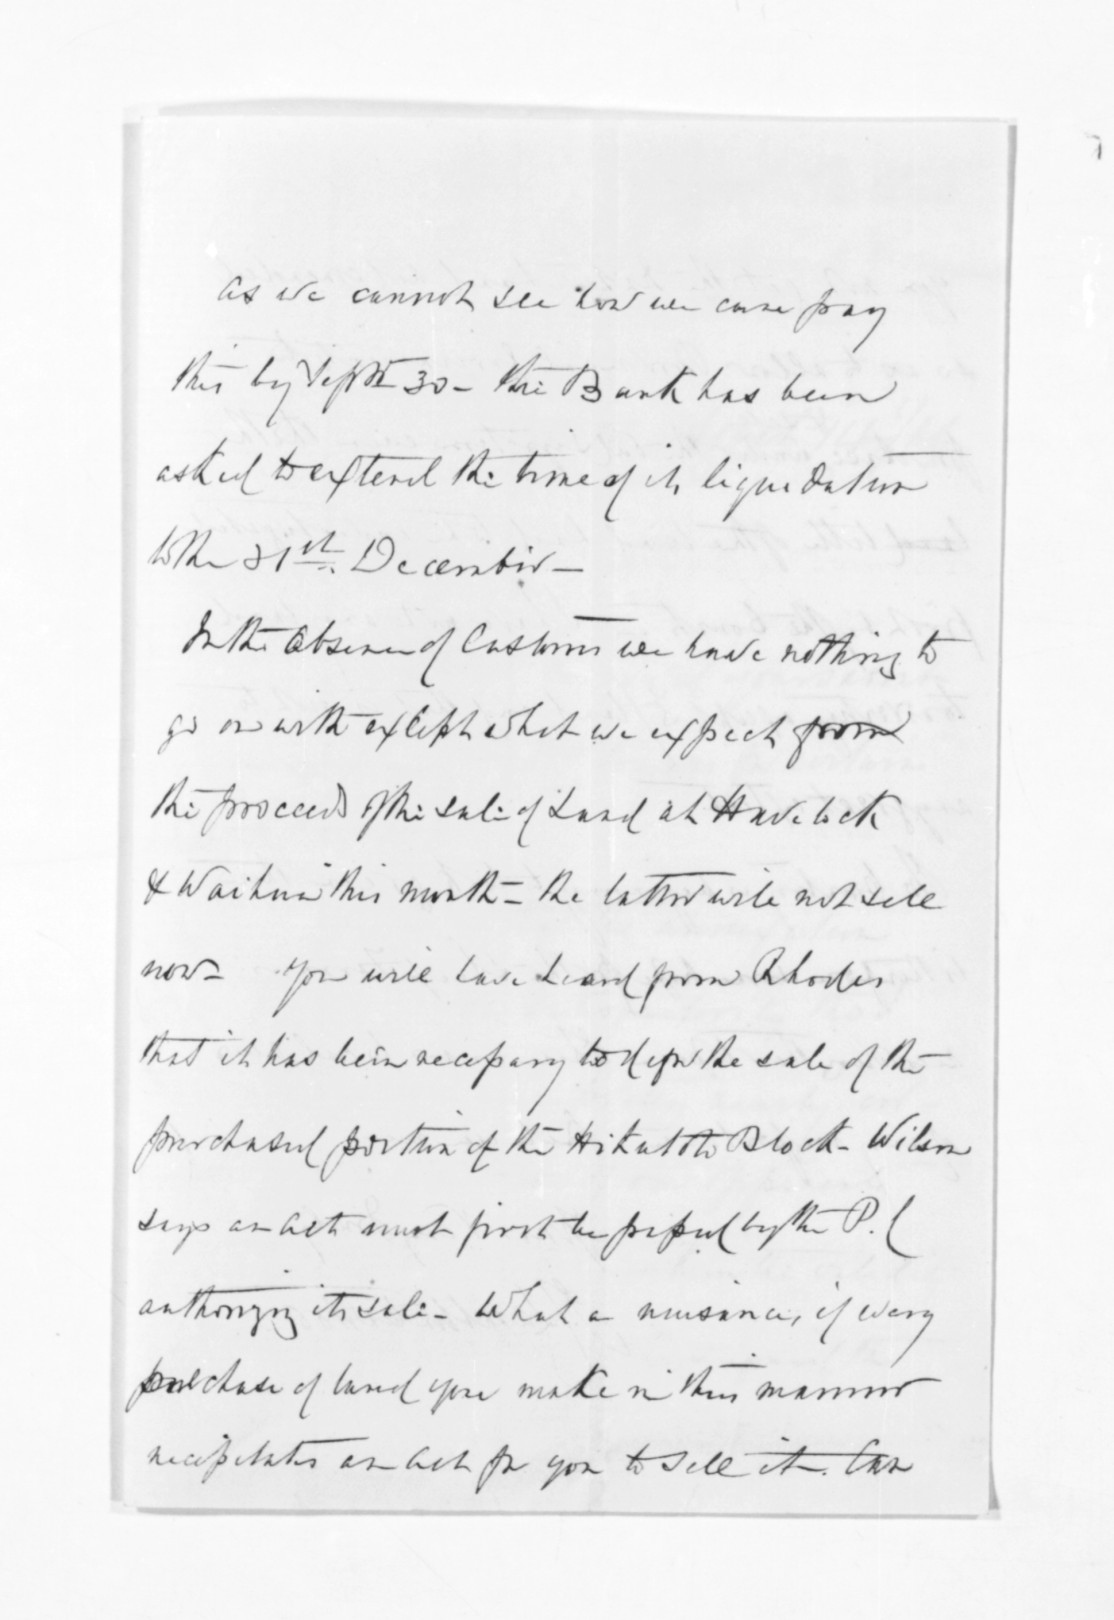 as we cannot see how we can pay
this by Septr 30 - the Bank has been
asked to extend the time of its liquidation
to the 31st. December -
In the absence of Customs we have nothing to
go on with except what we expect from
the proceeds of the sale of Land at Havelock
& this month - the latter will not sell
now - you will have heard from Rhodes
that it has been necessary to defer the sale of the
purchased portion of the Hikutoto Block - Wilson
says an act must first be passed by the P. C
authorizing its sale - What a nuisance, if every
purchase of land you make in this manner
necessitates an act for you to sell it. Can